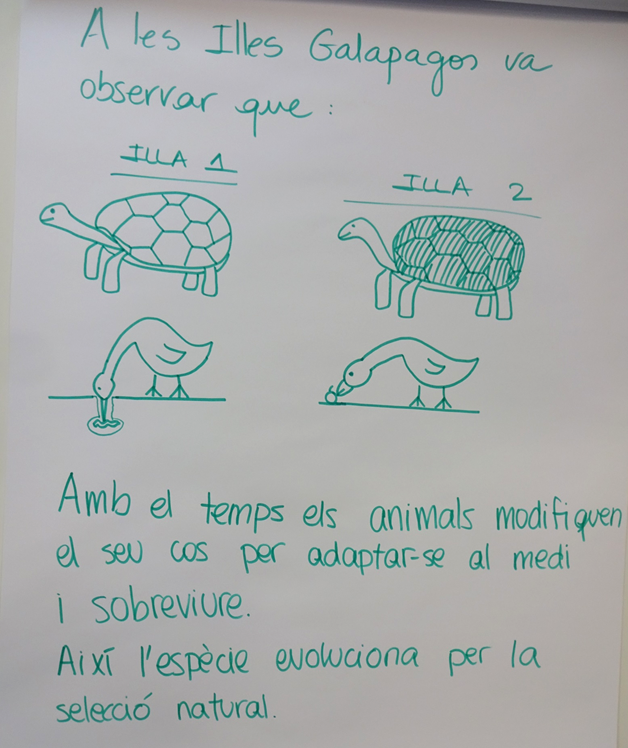 A les Illes Galapagos va
observar que:
ILLA 1
ILLA 2
Amb el temps els animals modifiquen
el seu cos per adaptar-se al medi
i sobreviure.
Així l'espècie evoluciona per la
selecció natural.